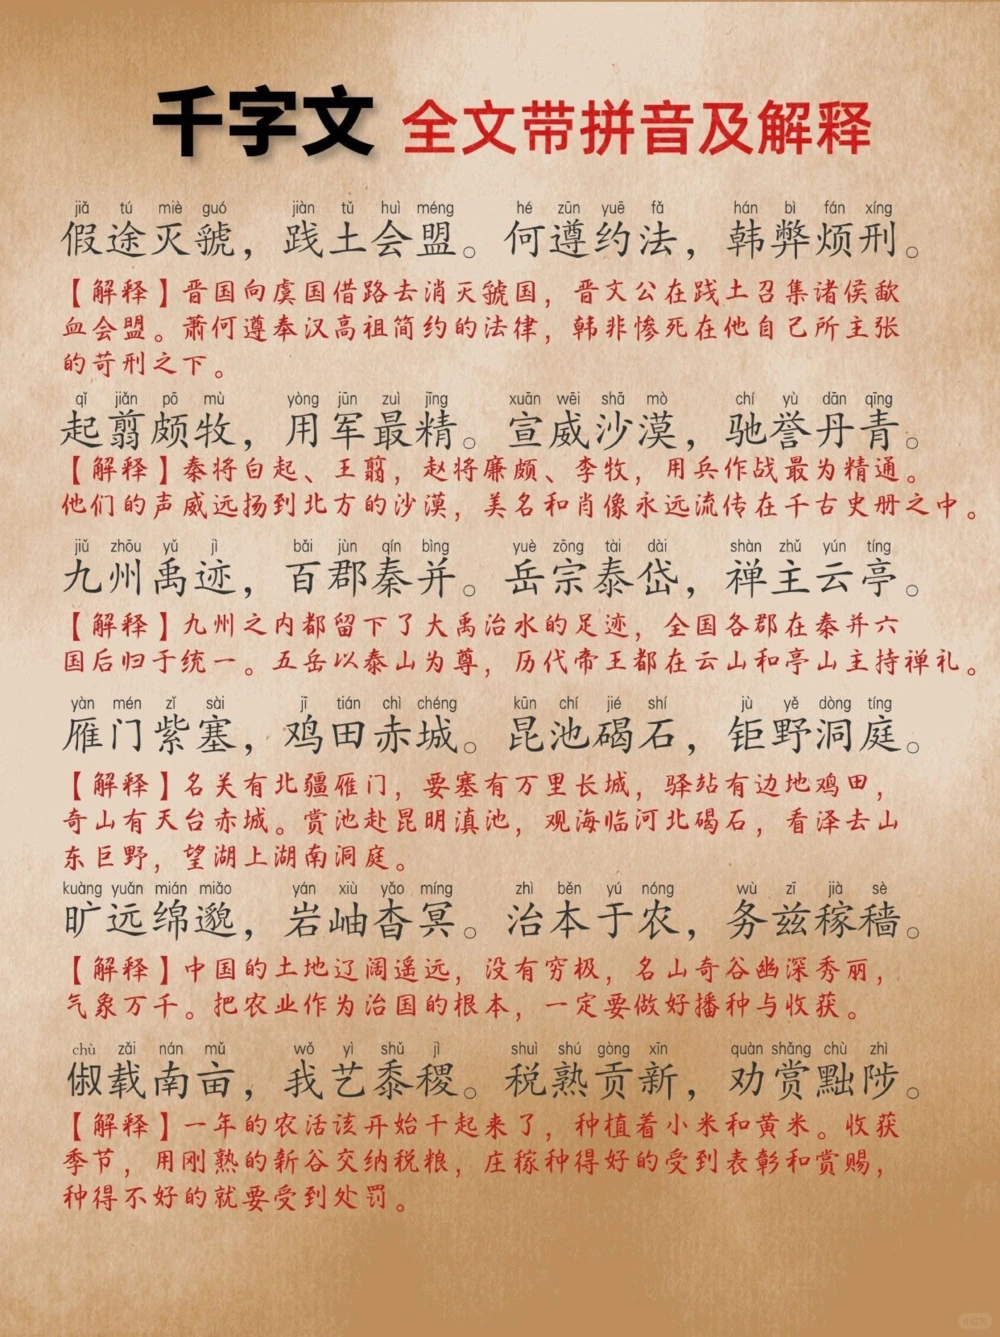 千字文 全文带拼音及解释
jiǎ tú miè guó jiàn tǔ huì méng hé zūn yuē fǎ hán bì fán xíng
假途灭虢，践土会盟。何遵约法，韩弊烦刑。
【解释】晋国向虞国借路去消灭虢国，晋文公在践土召集诸侯歃
血会盟。萧何遵奉汉高祖简约的法律，韩非惨死在他自己所主张
的苛刑之下。
qǐ jiǎn pō mù yòng jūn zuì jīng xuān wēi shā mò chí yù dān qīng
起翦颇牧，用军最精。宣威沙漠，驰誉丹青。
【解释】秦将白起、王翦，赵将廉颇、李牧，用兵作战最为精通。
他们的声威远扬到北方的沙漠，美名和肖像永远流传在千古史册之中。
jiǔ zhōu yǔ jì bǎi jùn qín bìng yuè zōng tài dài shàn zhǔ yún tíng
九州禹迹，百郡秦并。岳宗泰岱，禅主云亭。
【解释】九州之内都留下了大禹治水的足迹，全国各郡在秦并六
国后归于统一。五岳以泰山为尊，历代帝王都在云山和亭山主持禅礼。
yàn mén zǐ sài jī tián chì chéng kūn chí jié shí jù yě dòng tíng
雁门紫塞，鸡田赤城。昆池碣石，钜野洞庭。
【解释】名关有北疆雁门，要塞有万里长城，驿站有边地鸡田，
奇山有天台赤城。赏池赴昆明滇池，观海临河北碣石，看泽去山
东巨野，望湖上湖南洞庭。
kuàng yuǎn mián miǎo yán xiù yǎo míng zhì běn yú nóng wù zī jià sè
旷远绵邈，岩岫杳冥。治本于农，务兹稼穑。
【解释】中国的土地辽阔遥远，没有穷极，名山奇谷幽深秀丽，
气象万千。把农业作为治国的根本，一定要做好播种与收获。
chù zǎi nán mǔ wǒ yì shǔ jì shuì shú gòng xīn quàn shǎng chù zhì
俶载南亩，我艺黍稷。税熟贡新，劝赏黜陟。
【解释】一年的农活该开始干起来了，种植着小米和黄米。收获
季节，用刚熟的新谷交纳税粮，庄稼种得好的受到表彰和赏赐，
种得不好的就要受到处罚。